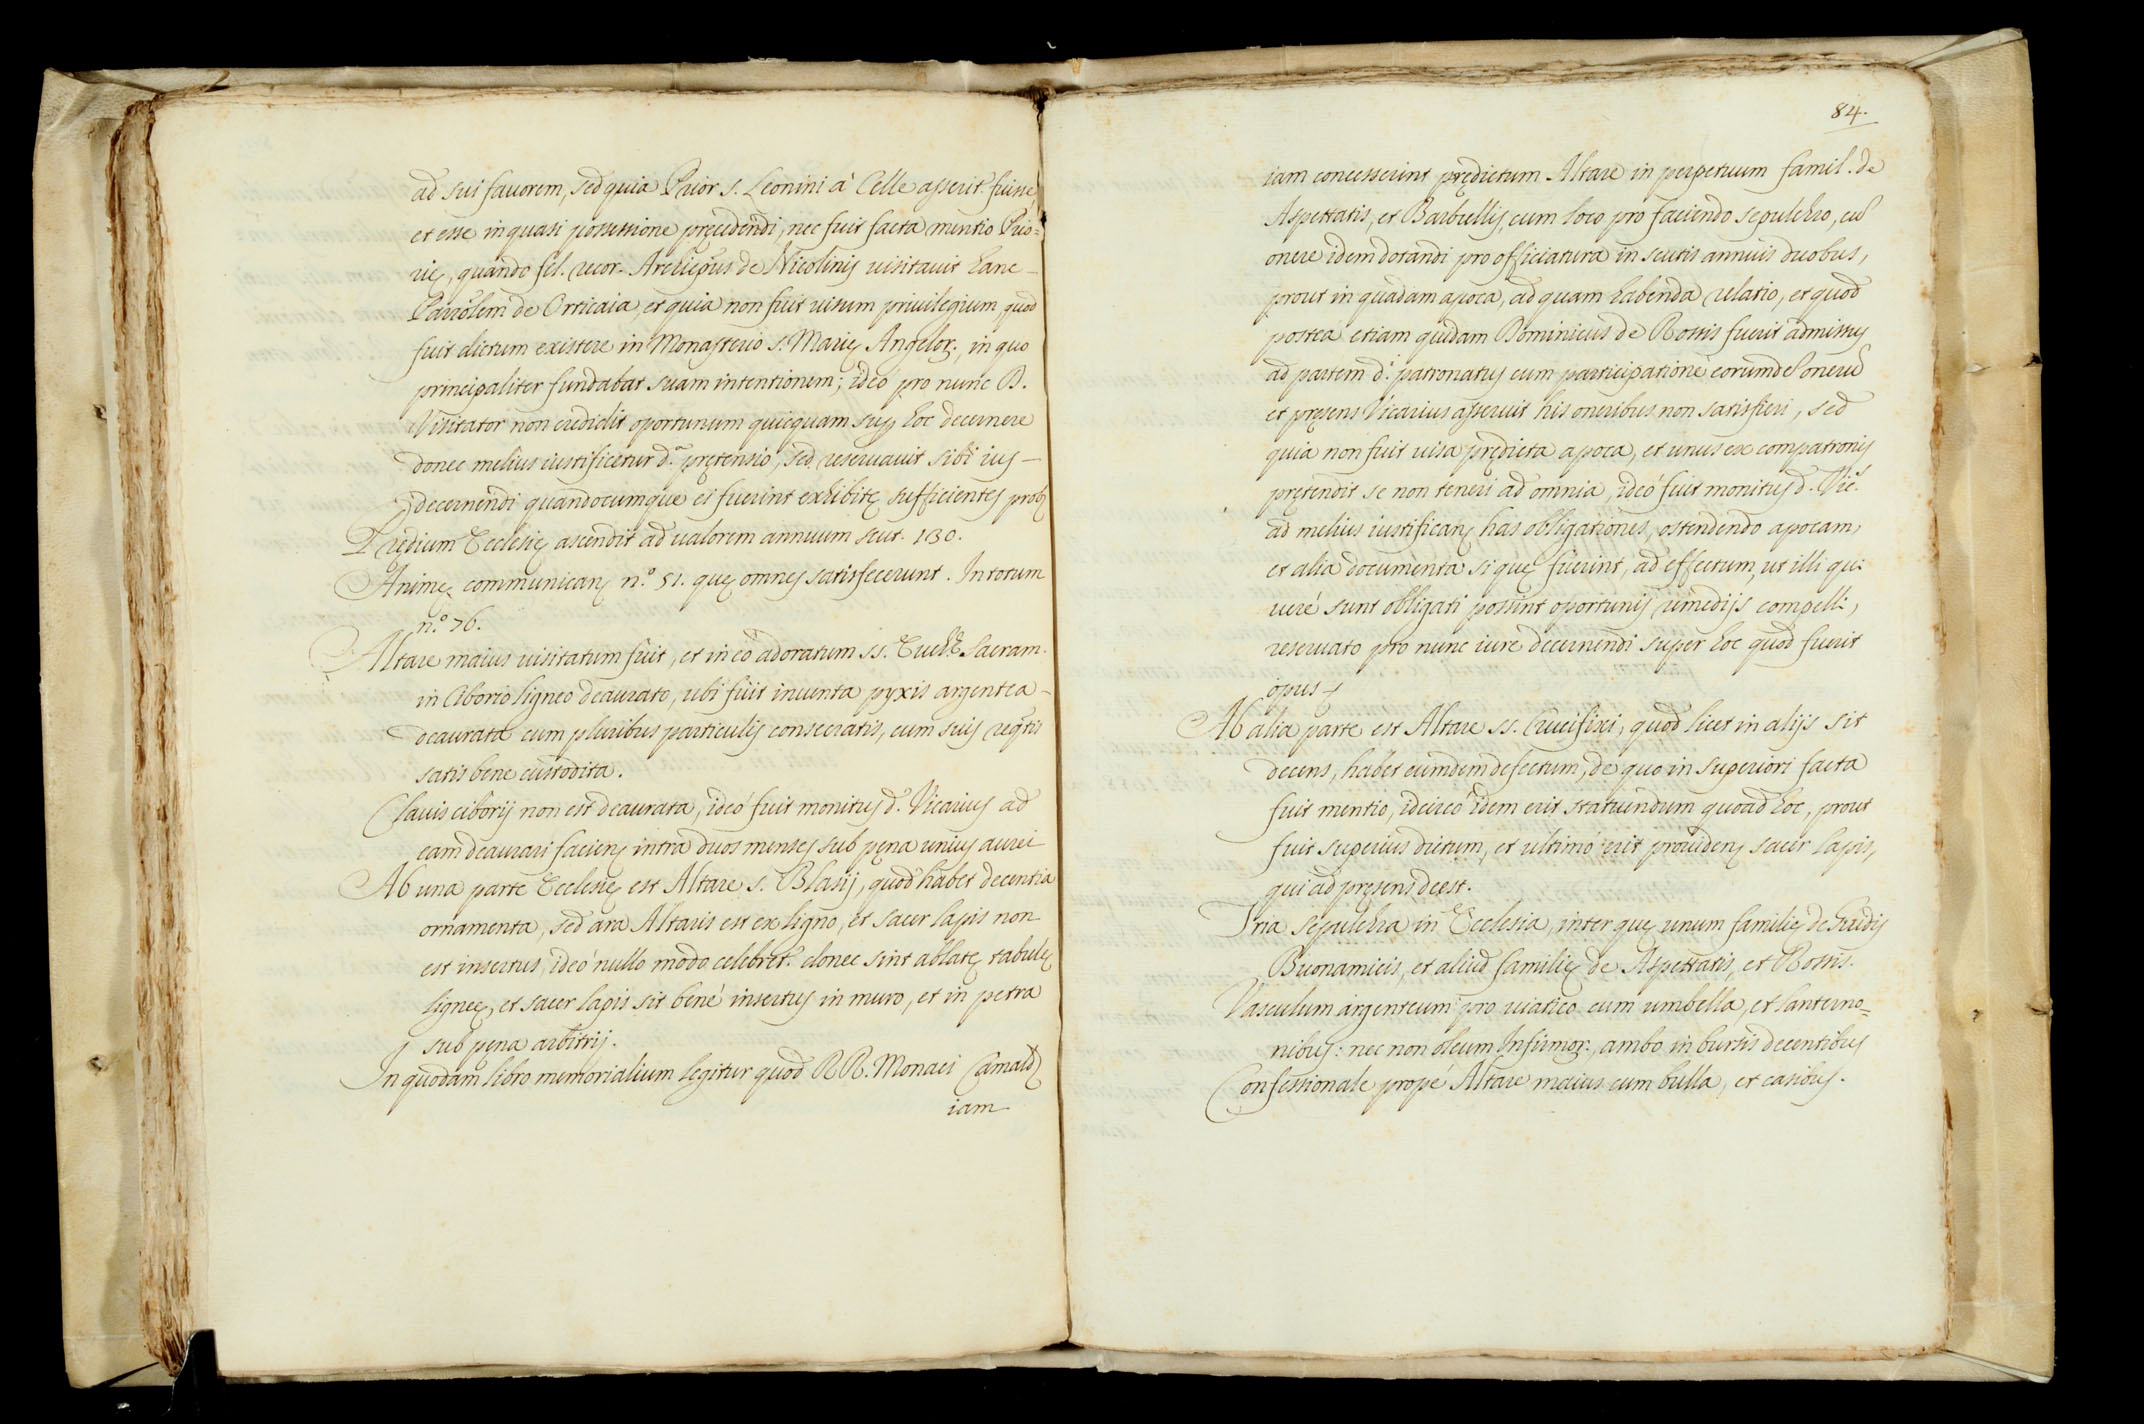 ad sui fauorem, sed quia Prior s. Leonini à Celle asserit fuisse,
et esse in quasi possessione pręcedendi, nec fuit facta mentio Prio=
rię, quando fel. recor. Archiepũs de Nicolinis uisitauit hanc
Parrõlem de Orticaia, et quia non fuit uisum priuilegium quod
fuit dictum existere in Monasterio s. Marię Angelor., in quo
principaliter fundabat suam intentionem; ideò pro nunc D.
Visitator non credidit oportunum quicquam sup hoc decernere
donec melius iustificetur d.ª pretensio, sed reseruauit sibi ius
decernendi quandocumque ei fuerint exhibitę sufficientes prob
Prędium Ecclesię ascendit ad ualorem annuum scut. 130.
Animę communicanꝫ n.º 51. quę omnes satisfecerunt. In totum
n.º 76.
Altare maius uisitatum fuit, et in eo adoratum ss. Euch.ę Sacram.
in Ciborio ligneo deaurato, ubi fuit inuenta pyxis argentea
deaurata cum pluribus particulis consecratis, cum suis reqtis
satis bene custodita.
Clauis ciborij non est deaurata, ideò fuit monitus d. Vicarius ad
eam deaurari facienꝫ intra duos menses sub pęna unius aurei
Ab una parte Ecclesię est Altare s. Blasij, quod habet decentia
ornamenta, sed ara Altaris est ex ligno, et sacer lapis non
est insertus, ideò nullo modo celebret.r donec sint ablatę tabulę
lignęę, et sacer lapis sit benè insertus in muro, et in petra
sub pęna arbitrij.
In quodam libro memorialium legitur quod RR. Monaci Camald
iam
84.
iam concesserint prędictum Altare in perpetuum famil. de
Aspettatis, et Barbullis, cum loco pro faciendo sepulchro, cũ
onere idem dotandi pro officiatura in scutis annuis duobus,
prout in quadam apoca, ad quam habenda relatio, et quod
postea etiam quidam Dominicus de Rossis fuerit admissus
ad partem d.i patronatus cum participatione eorumdẽ onerũ
et pręsens Vicarius asseruit his oneribus non satisfieri, sed
quia non fuit uisa prędicta apoca, et unus ex compatronis
pretendit se non teneri ad omnia, ideò fuit monitus d. Vic.s
ad melius iustificanꝫ has obligationes, ostendendo apocam,
et alia documenta si quę fuerint, ad effectum, ut illi qui
uerè sunt obligati possint oportunis remedijs compelli,
reseruato pro nunc iure decernendi super hoc quod fuerit
opus
Ab alia parte est Altare ss. Crucifixi, quod licet in alijs sit
decens, habet eumdem defectum, de quo in superiori facta
fuit mentio, idcircò idem erit statuendum quoad hoc, prout
fuit superius dictum, et ultimò erit prouidenꝫ sacer lapis,
qui ad pręsens deest.
Tria sepulchra in Ecclesia, inter quę unum familię de Guidis
Buonamicis, et aliud familię de Aspettatis, et Rossis.
Vasculum argenteum pro uiatico cum umbella, et lanterno=
nibus: nec non oleum Infirmor., ambo in bursis decentibus
Confessionale propè Altare maius cum bulla, et casibus.